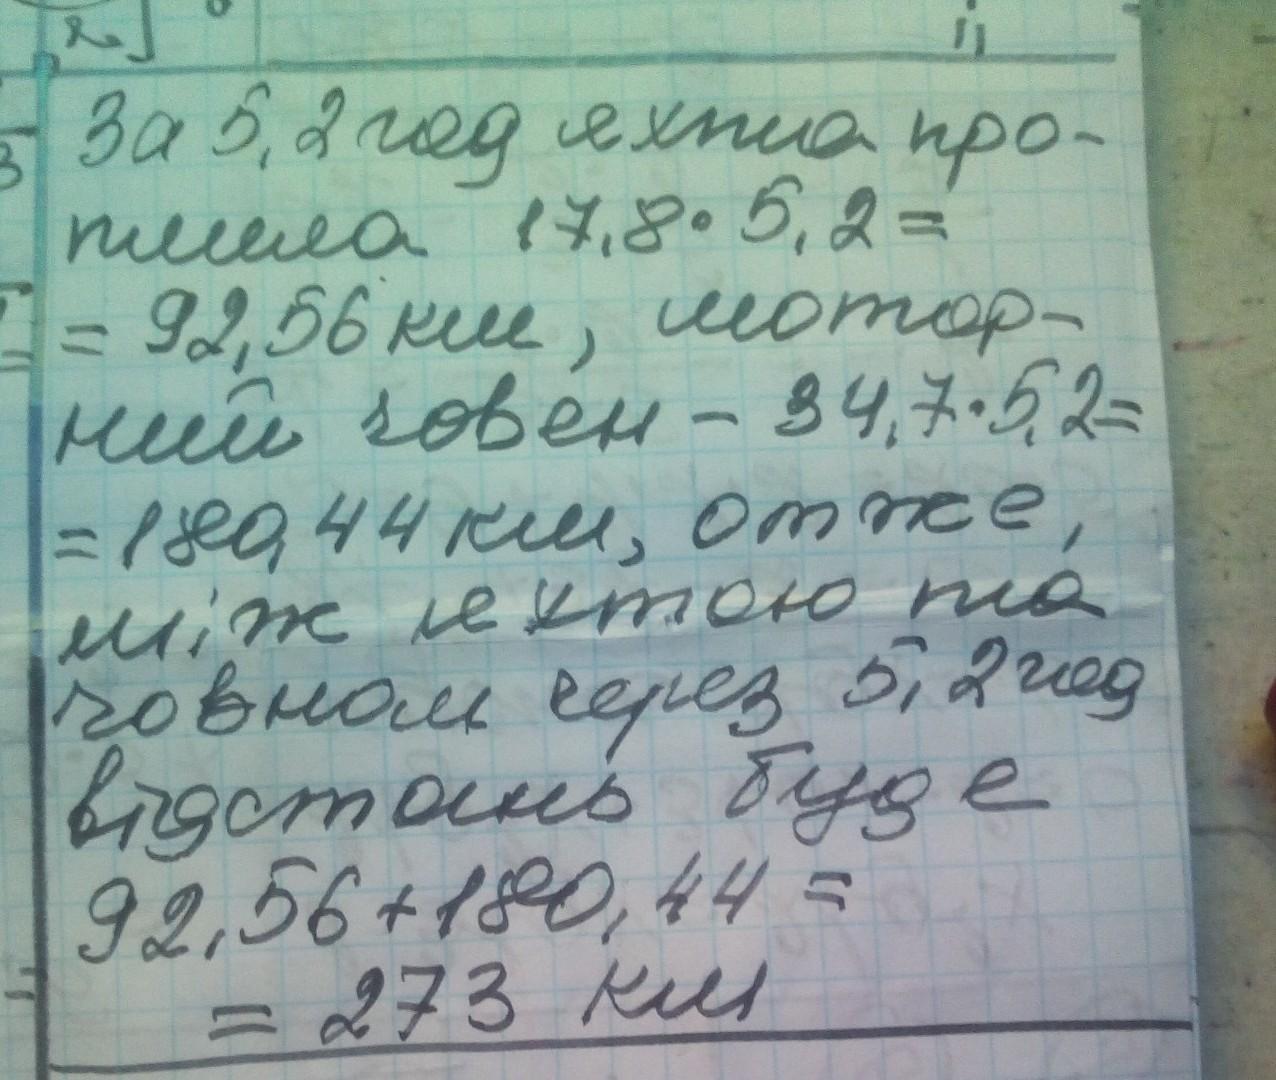 За 5,2 год яхта про-
плила 17,8·5,2=
=92,56км, мотор-
ний човен – 34,7·5,2=
=180,44км, отже,
між яхтою та
човном через 5,2год
відстань буде
92,56+180,44=
=273 км